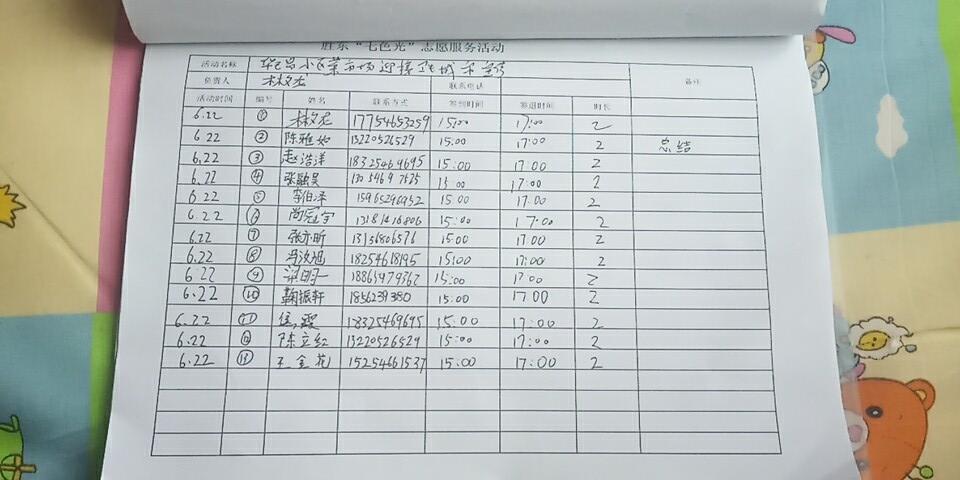 胜东“七色光”志愿服务活动
活动名称 小区菜市场迎接卫城 备注
负责人 林牧龙 联系电话
活动时间 编号 姓名 联系方式 签到时间 签退时间 时长
6.22 ① 林牧龙 17754653259 15:00 17:00 2
6.22 ② 陈雅如 13220526529 15:00 17:00 2 总结
6.22 ③ 赵浩洋 18325469695 15:00 17:00 2
6.22 ④ 张融昊 15:00 17:00 2
6.22 ⑤ 李伯泽 15965296952 15:00 17:00 2
6.22 ⑥ 尚冠宇 15:00 17:00 2
6.22 ⑦ 张亦昕 15:00 17:00 2
6.22 ⑧ 冯汝旭 18254618195 15:00 17:00 2
6.22 ⑨ 梁明一 15:00 17:00 2
6.22 ⑩ 鞠振轩 15:00 17:00 2
6.22 ⑪ 18325469695 15:00 17:00 2
6.22 ⑫ 陈立红 13220526529 15:00 17:00 2
6.22 ⑬ 王金花 15254661537 15:00 17:00 2